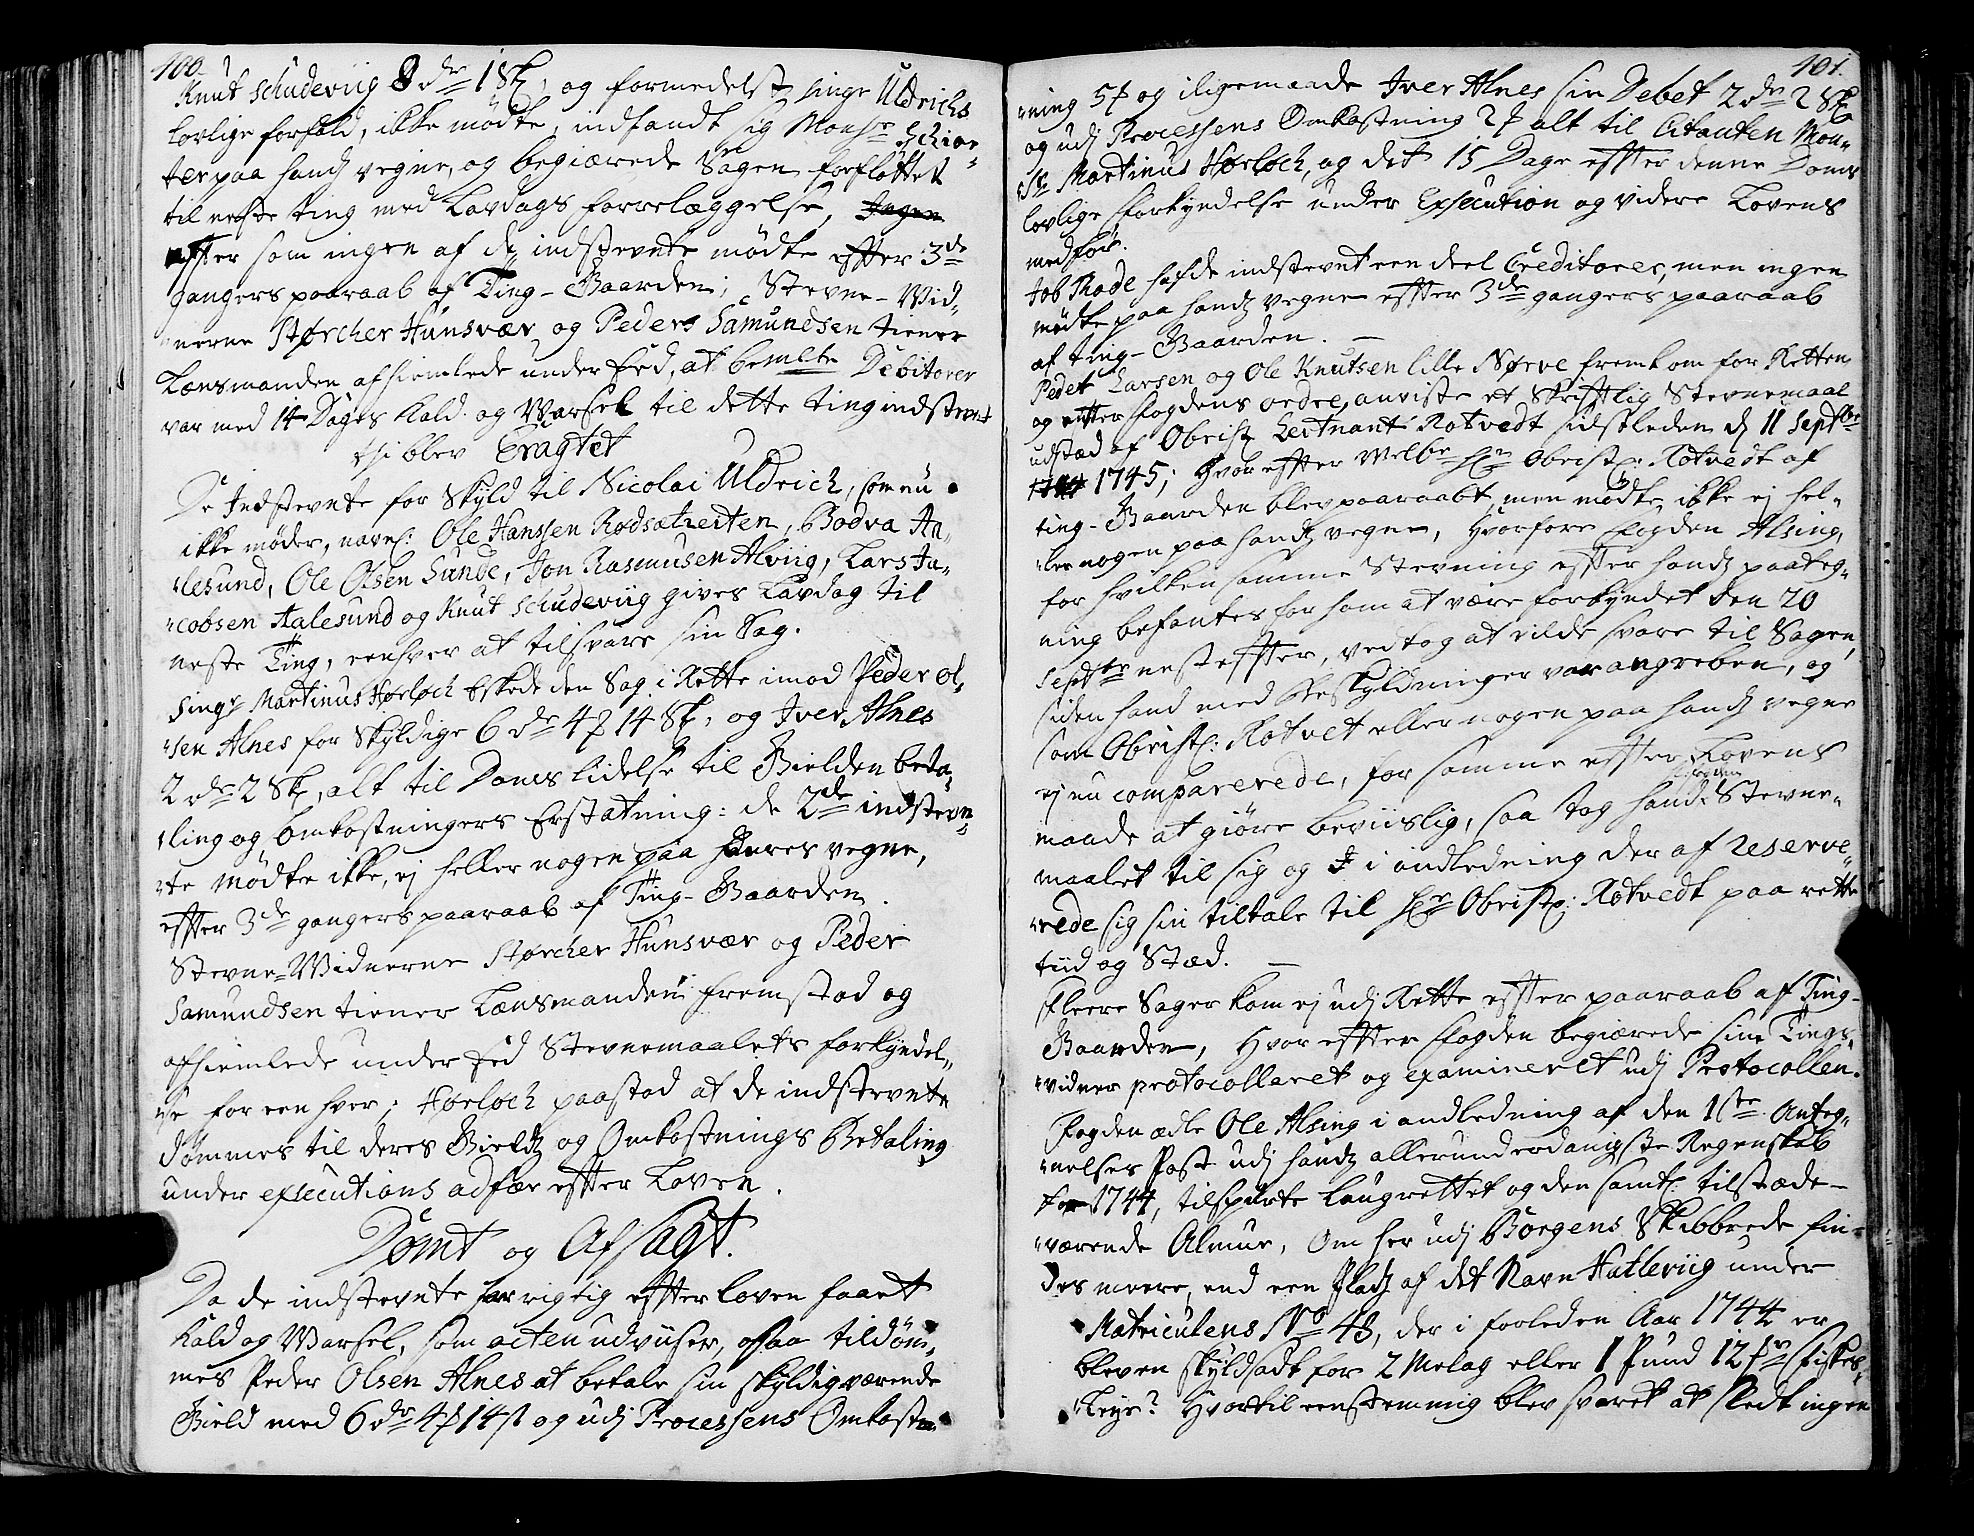 100.
Knut Schudeviig 8 dr 1 Sk, og formedelst Singr Uldrichs
lovlige forfald, ikke mødte, indfandt sig Monsr Schiør-
ter paa hands vegne, og begiærede Sagen forfløttet
til neste ting med Lavdags forrelæggelse,
effter som ingen af de indstevnte mødte effter 3de
gangers paaraab af Ting-Gaarden; Stevne-Vid-
nerne Størcher Hunsvær og Peder Samundsen tiener
Lænsmanden afhiemlede under Eed, at bemelte Debitorer
var med 14 Dages Kald og Warsel til dette ting indstevnt
thi blev Eragtet
De Indstevnte for Skyld til Nicolai Uldrich, som nu
ikke møder, navnl: Ole Hanssen Rødsætreiten, Bodva Aa-
lesund, Ole Olsen Sunde, Jon Rasmusen Alviig, Lars Ja-
cobsen Aalesund og Knut Schudeviig gives Lavdag til
neste Ting, eenhver at tilsvare sin Sag.
Singr Martinus Hørløch Eskede den Sag i Rette imod Peder Ol-
sen Alnes for Skyldige 6 dr 4 # 14 Sk, og Iver Alnes
2 dr 2 Sk, alt til Doms lidelse til Gielden beta-
ling og Omkostningers Erstatning: de 2de indstevn-
te mødte ikke, ej heller nogen paa deres vegne,
effter 3de gangers paaraab af Ting-Gaarden.
Stevne-Widnerne Størcher Hunsvær og Peder
Samundsen tiener Lænsmanden fremstod og
afhiemlede under Eed Stevnemaalets forkyndel-
se for een hver; Hørløch paastod at de indstevnte
dømmes til deres Gields og Omkostnings Betaling
under executions adfær effter Loven.
Dømt og Afsagt.
Da de indstevnte har rigtig effter loven faaet
Kald og Warsel, som acten udviiser, saa tildøm-
mes Peder Olsen Alnes at betale sin skyldig værende
Gield med 6 dr 4 # 14 s og udj Processens Omkost-
101.
ning 5 # og iligemaade Iver Alnes sin Debet 2 dr 2 Sk
og udj Processens Omkostning 2 # alt til Citanten Mon-
sr Martinus Hørløch, og det 15 Dage effter denne Doms
lovlige forkyndelse under Execution og videre Lovens
medfør.
Job Rode hafde indstevnt een deel Creditorer, men ingen
mødte paa hands vegne effter 3de gangers paaraab
af ting-Gaarden.
Peder Larsen og Ole Knutsen lille Nørve fremkom for Retten
og effter fogdens ordre, anviste et Skrifftlig Stevnemaal
udstæd af Obrist Leutnant Rotvedt sidstleden d 11 Septbr
1745; Hvor effter Welbr Hr Obristl: Rotvedt af
ting-Gaarden blev paaraabt, men mødte ikke ej hel-
ler nogen paa hands vegne, Hvorfore fogden Alsing,
for hvilken samme Stevning effter hands paateg-
ning befantes for ham at være forkyndet den 20
Septbr nest effter, vedtog at vilde svare til Sagen,
siden hand med Beskyldninger var angreben, og
som Obristl: Rotvet eller nogen paa hands vegne
ej nu comparerede, for samme effter Lovens
maade at giøre beviislig, saa tog hand Stevne-
maalet til sig og i andledning der af reserve-
rede sig sin tiltale til Hr Obristl: Rotvedt paa rette
tiid og Stæd.
Fleere Sager kom ej udj Rette effter paaraab af Ting-
Gaarden, Hvor effter fogden begiærede sine Tings-
vidner protocolleret og examineret udj Protocollen.
Fogden ædle Ole Alsing i andledning af den 1ste Anteg-
nelses Post udj hands allerunderdanigste Regenskab
for 1744, tilspurte Laugrettet og den samtl: tilstæde-
værende Almue, Om her udj Borgens Skibbrede fin-
des meere, end een Plads af det Navn Hatleviig under
Matriculens No 48, der i forleden Aar 1744 er
bleven skyldsadt for 2 Melag eller 1 Pund 12 # Fiskes
Leye? Hvortil eenstemmig blev svaret at sledt ingen